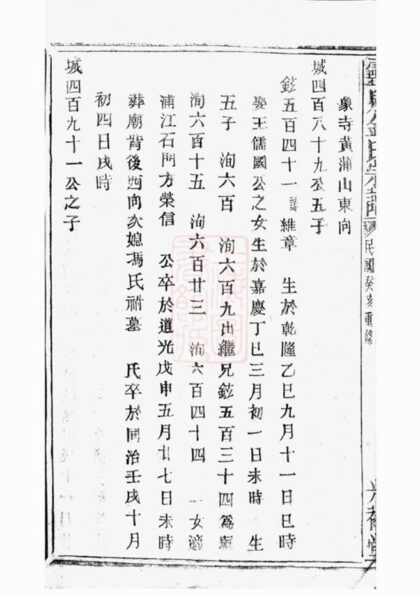 象寺黃蒲山東向
城四百八十九公五子
鉉五百四十一 維章 生於乾隆乙巳九月十一日巳時
娶王儒國公之女生於嘉慶丁巳三月初一日未時 生
五子 洵六百 洵六百九出繼兄鉉五百三十四為嗣
洵六百十五 洵六百廿三 洵六百四十四 一女適
浦江石門方榮信 公卒於道光戊申五月廿七日未時
葬廟背後酉向亥媳馮氏祔墓 氏卒於同治壬戌十月
初四日戌時
城四百九十一公之子
民國癸亥重修